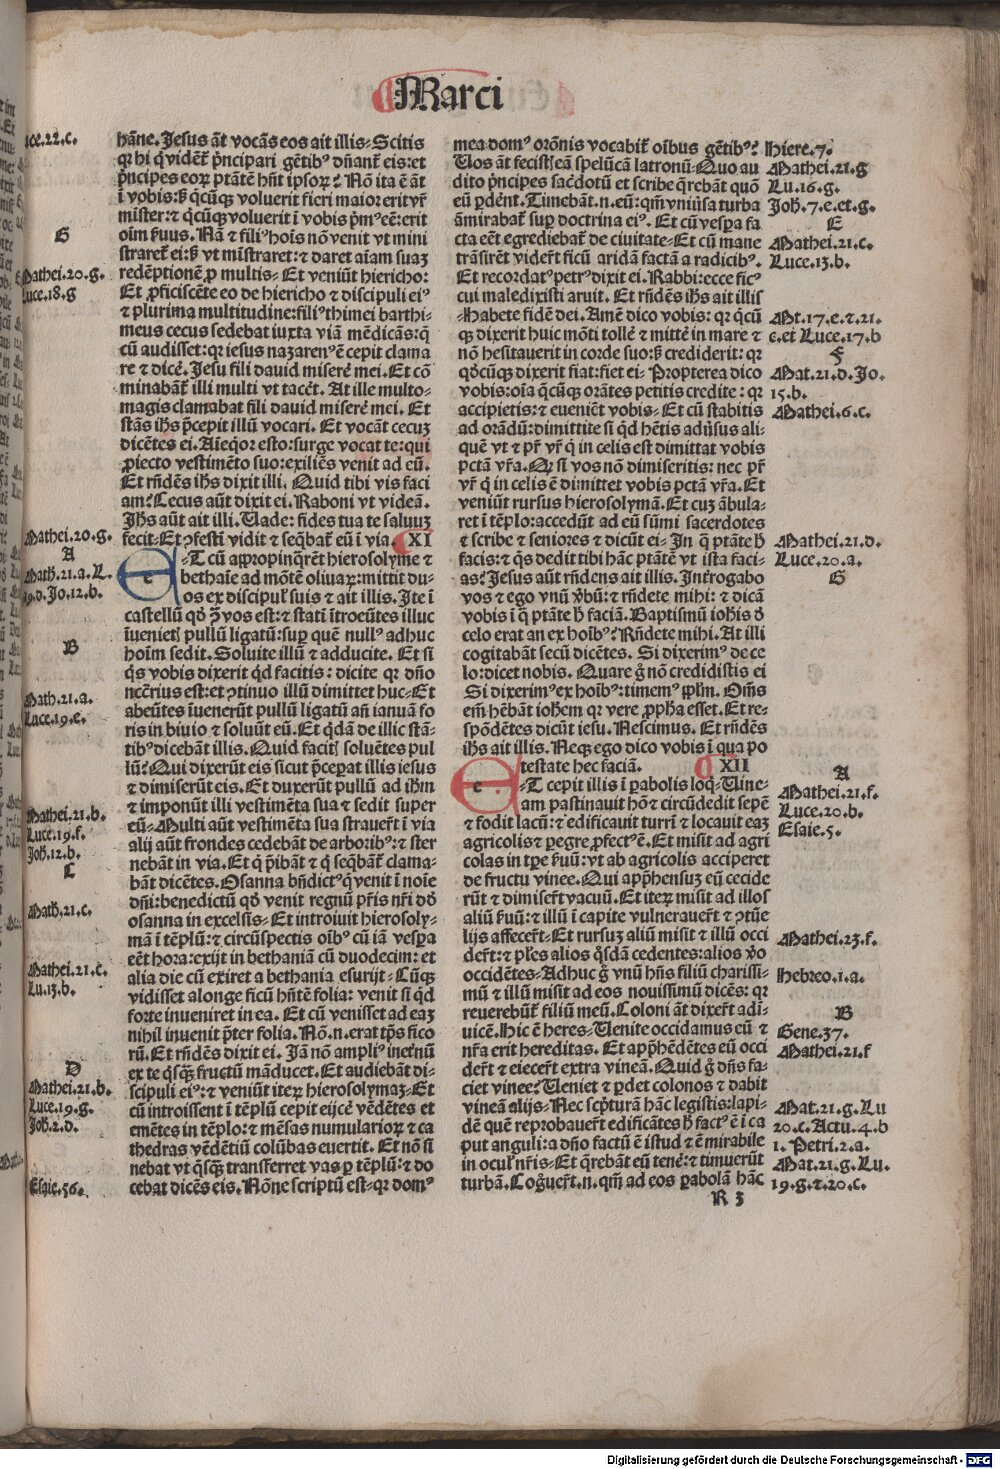 Marci
uce.22.c.
G
Mathei.20.g.
Luce.18.g
Mathei.20.g.
A
Math.21.a.L.
19.d.Jo.12.b.
B
Math.21.a.
Luce.19.e.
Mathei.21.b.
Luce.19.f.
Joh.12.b.
C
Math.21.c.
Mathei.21.c.
Lu.13.b.
D
Mathei.21.b.
Luce.19.g.
Joh.2.d.
Esaie.56.
hāne. Jesus āt vocās eos ait illis. Scitis
qꝛ hi q̄ vidēt̄ p̄ncipari gētibꝰ dn̄ant̄ eis: et
p̄ncipes eoꝝ ptātē hn̄t ipsoꝝ? Nō ita ē āt
ī vobis: sꝫ q̄cūqꝫ voluerit fieri maioꝛ: erit vr̄
mīster: ⁊ q̄cūqꝫ voluerit ī vobis p̄mꝰ eē: erit
oīm ẜuus. Nā ⁊ filiꝰ hoīs nō venit vt mini
straret̄ ei: sꝫ vt mīstraret: ⁊ daret aīam suaꝫ
redēptionē ꝓ multis. Et veniūt hiericho:
Et ꝓficiscēte eo de hiericho ⁊ discipuli eiꝰ
⁊ plurima multitudine: filiꝰ thimei barthi-
meus cecus sedebat iuxta viā mēdicās: q̄
cū audisset: qꝛ iesus nazarenꝰ ē cepit clama
re ⁊ dicē. Jesu fili dauid miserē mei. Et cō
minabāt̄ illi multi vt tacēt. At ille multo-
magis clamabat fili dauid miserē mei. Et
stās ihs p̄cepit illū vocari. Et vocāt cecuꝫ
dicētes ei. Aīeqoꝛ esto: surge vocat te: qui
ꝓiecto vestimēto suo: exiliēs venit ad eū.
Et rn̄dēs ihs dixit illi. Quid tibi vis faci
am? Cecus aūt dixit ei. Raboni vt videā.
Jhs aūt ait illi. Uade: fides tua te saluuꝫ
fecit. Et ꝯfestī vidit ⁊ seq̄bat̄ eū ī via. XI
ET cū appropinq̄rēt hierosolyme ⁊
bethaīe ad mōtē oliuaꝝ: mittit du-
os ex discipul̄ suis ⁊ ait illis. Ite ī
castellū qd̄ ꝯ̄ vos est: ⁊ statī ītroeūtes illuc
īuenietꝭ pullū ligatū: suꝑ quē nullꝰ adhuc
hoīm sedit. Soluite illū ⁊ adducite. Et si
q̄s vobis dixerit qd̄ facitis: dicite qꝛ dn̄o
ncc̄rius est: et ꝯtinuo illū dimittet huc. Et
abeūtes īuenerūt pullū ligatū an̄ ianuā fo
ris in biuio ⁊ soluūt eū. Et q̄dā de illic stā-
tibꝰ dicebāt illis. Quid facitꝭ soluētes pul
lū? Qui dixerūt eis sicut p̄ceꝑat illis iesus
⁊ dimiserūt eis. Et duxerūt pullū ad ihm̄
⁊ imponūt illi vestimēta sua ⁊ sedit super
eū. Multi aūt vestimēta sua strauer̄t ī via
alij aūt frondes cedebāt de arboꝛibꝰ: ⁊ ster
nebāt in via. Et q̄ p̄ibāt ⁊ q̄ seq̄bāt̄ clama-
bāt dicētes. Osanna bn̄dictꝰ q̄ venit ī noīe
dn̄i: benedictū qd̄ venit regnū pr̄is nr̄i dd̄
osanna in excelsis. Et introiuit hierosoly-
mā ī tēplū: ⁊ circūspectis oībꝰ cū iā vesꝑa
eēt hoꝛa: exijt in bethaniā cū duodecim: et
alia die cū exiret a bethania esurijt. Cūqꝫ
vidisset alonge ficū hn̄tē folia: venit si qd̄
foꝛte inueniret in ea. Et cū venisset ad eaꝫ
nihil inuenit p̄ter folia. Nō.n.erat tp̄s fico
rū. Et rn̄dēs dixit ei. Jā nō ampliꝰ inet̄nū
ex te q̄sqꝫ̄ fructū māducet. Et audiebāt di-
scipuli eiꝰ: ⁊ veniūt iteꝝ hierosolymaꝫ. Et
cū introissent ī tēplū cepit eijcē vēdētes et
emētes in tēplo: ⁊ mēsas numularioꝝ ⁊ ca
thedras vēdētiū colūbas euertit. Et nō si
nebat vt q̄sqꝫ̄ transferret vas ꝑ tēplū: ⁊ do
cebat dicēs eis. Nōne scriptū est. qꝛ domꝰ
mea domꝰ oꝛōnis vocabit̄ oībus gētibꝰ?
Uos āt fecistꝭ eā spelūcā latronū. Quo au
dito p̄ncipes sac̄dotū et scribe q̄rebāt quō
eū ꝑdent̄. Timebāt.n.eū: qm̄ vniūsa turba
āmirabat̄ suꝑ doctrina eiꝰ. Et cū vesꝑa fa
cta eēt egrediebat̄ de ciuitate. Et cū mane
trāsirēt vider̄t ficū aridā factā a radicibꝰ.
Et recoꝛdatꝰ petrꝰ dixit ei. Rabbi: ecce ficꝰ
cui maledixisti aruit. Et rn̄dēs ihs ait illis
Habete fidē dei. Amē dico vobis: qꝛ q̄cū
qꝫ dixerit huic mōti tollē ⁊ mittē in mare ⁊
nō hesitauerit in coꝛde suo: sꝫ crediderit: qꝛ
qd̄cūqꝫ dixerit fiat: fiet ei. Propterea dico
vobis: oīa q̄cūqꝫ oꝛātes petitis credite: qꝛ
accipietis: ⁊ eueniēt vobis. Et cū stabitis
ad oꝛādū: dimittite si qd̄ hētis adūsus ali-
quē vt ⁊ pr̄ vr̄ q̄ in celis est dimittat vobis
pctā vr̄a. Qꝛ si vos nō dimiseritis: nec pr̄
vr̄ q̄ in celis ē dimittet vobis pctā vr̄a. Et
veniūt rursus hierosolymā. Et cuꝫ ābula-
ret ī tēplo: accedūt ad eū sūmi sacerdotes
⁊ scribe ⁊ senioꝛes ⁊ dicūt ei. In q̄ ptāte h̄
facis: ⁊ q̄s dedit tibi hāc ptātē vt ista faci-
as? Jesus aūt rn̄dens ait illis. Int̄rogabo
vos ⁊ ego vnū ꝟbū: ⁊ rn̄dete mihi: ⁊ dicā
vobis ī q̄ ptāte h̄ faciā. Baptismū iohīs d̄
celo erat an ex hoībꝰ? Rn̄dete mihi. At illi
cogitabāt secū dicētes. Si dixerimꝰ de ce
lo: dicet nobis. Quare ḡ nō credidistis ei
Si dixerimꝰ ex hoībꝰ: timemꝰ ppl̄m. Om̄s
em̄ hēbāt iohēm qꝛ vere ꝓpha esset. Et re-
spōdētes dicūt iesu. Nescimus. Et rn̄dēs
ihs ait illis. Neqꝫ ego dico vobis ī qua po
testate hec faciā. XII
ET cepit illis ī ꝑabolis loq̄. Uine-
am pastinauit hō ⁊ circūdedit sepē
⁊ fodit lacū: ⁊ edificauit turrī ⁊ locauit eaꝫ
agricolis ⁊ ꝑegre ꝓfectꝰ ē. Et misit ad agri
colas in tp̄e ẜuū: vt ab agricolis acciperet
de fructu vinee. Qui app̄hensuꝫ eū cecide
rūt ⁊ dimiser̄t vacuū. Et iteꝝ misit ad illos
aliū ẜuū: ⁊ illū ī capite vulnerauer̄t ⁊ ꝯtūe
lijs affecer̄t. Et rursuꝫ aliū misit ⁊ illū occi
der̄t: ⁊ pl̄es alios q̄sdā cedentes: alios ꝟo
occidētes. Adhuc ḡ vnū hn̄s filiū charissi-
mū ⁊ illū misit ad eos nouissimū dicēs: qꝛ
reuerebūt̄ filiū meū. Coloni āt dixer̄t adī-
uicē. Hic ē heres. Uenite occidamus eū ⁊
nr̄a erit hereditas. Et app̄hēdētes eū occi
der̄t ⁊ eiecer̄t extra vineā. Quid ḡ dn̄s fa-
ciet vinee? Ueniet ⁊ ꝑdet colonos ⁊ dabit
vineā alijs. Nec scpturā hāc legistis: lapi-
dē quē reprobauer̄t edificātes h̄ factꝰ ē ī ca
put anguli: a dn̄o factū ē istud ⁊ ē mirabile
in ocul̄ nr̄is. Et q̄rebāt eū tenē: ⁊ timuerūt
turbā. Cogꝰuer̄t.n.qm̄ ad eos ꝑabolā hāc
R 3
Hiere.7.
Mathei.21.g
Lu.16.g.
Joh.7.e.et.g.
E
Mathei.21.c.
Luce.13.b.
Mt.17.c.⁊.21.
c.et Luce.17.b
F
Mat.21.d.Jo.
15.b.
Mathei.6.c.
Mathei.21.d.
Luce.20.a.
G
A
Mathei.21.f.
Luce.20.b.
Esaie.5.
Mathei.23.f.
Hebreo.1.a.
B
Gene.37.
Mathei.21.f
Mat.21.g.Lu
20.c.Actu.4.b
1.Petri.2.a.
Mat.21.g.Lu.
19.g.⁊.20.c.
Digitalisierung gefördert durch die Deutsche Forschungsgemeinschaft - DFG